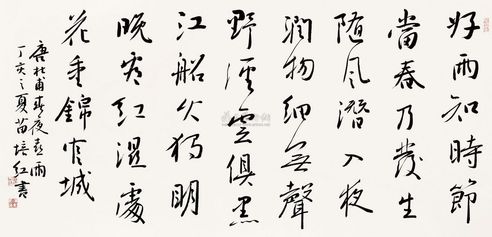 好雨知時節
當春乃發生
随風潛入夜
潤物細無聲
野徑雲俱黑
江船火獨明
曉看紅濕處
花重錦官城
唐杜甫春夜喜雨
丁亥之夏苗培红書